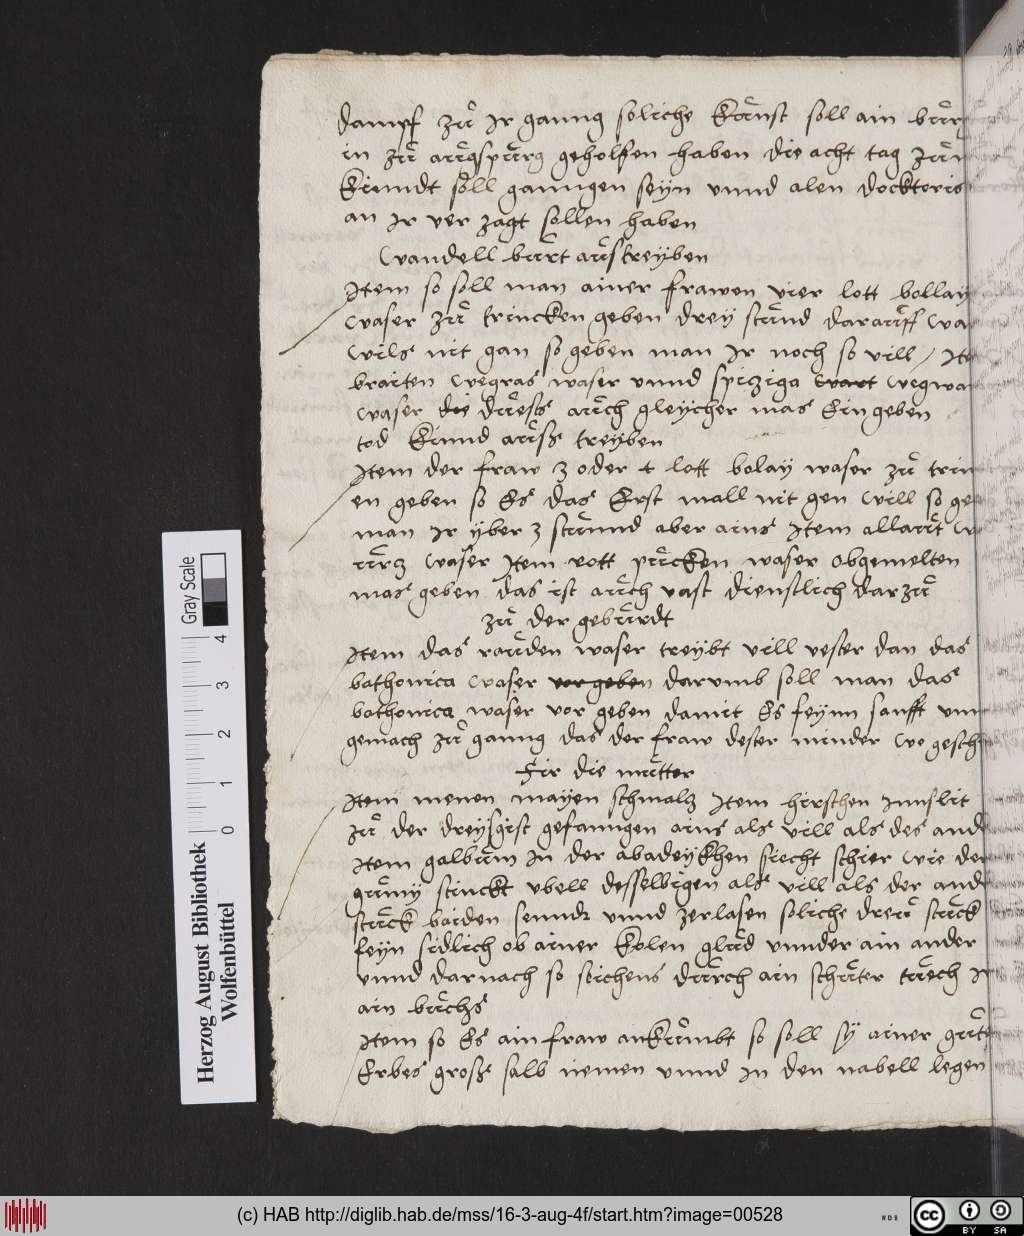 dampf zů Ir ganng soliche Kunst soll ain
in zů geholfen haben die acht tag
Kinndt soll ganngen seyn vnnd alen docktoris
an Ir ver zagt sollen haben
Wandell burt außtreyben
Item so soll man ainer frawen vier lott bollay
waser zů trincken geben drey stund darauff
wils nit gan so geben man Ir noch so vill /
braiten wegras waser vnnd spiziga
waser auch gleycher mas Ein geben
tod Kinnd auß treyben
Item der fraw 3 oder 4 lott bolay waser zů
en geben so Es das Erst mall nit gen will so
man Ir yber 3 stunnd aber ains Item
wurz waser Item rott pucken waser obgemelten
mas geben das ist auch vast dienstlich dar zů
zů der geburdt
Item das rauden waser treybt vill vester dan das
bathonica waser vor geben darumb soll man das
bathonica waser vor geben damit Es feynn sanfft
gemach zů ganng das der fraw dester minder we
Fir die mutter
Item menen mayen schmalz Item hirschen Innslit
zů der gefanngen ains als vill als des
Item galbům In der abadeyckhen siecht schier wie
gumy stinckt vbell desselbigen als vill als der
stuck baiden sennd vnnd zerlasen soliche dreu stuck
feyn sidlich ob ainer Kolen glud vnnder ain ander
vnnd dar nach so seichens durch ain tuech
ain buchs
Item so Es ain fraw ankumbt so soll sy ainer
Erbes groß salb nemen vnnd In den nabell legen
Herzog August Bibliothek
Wolfenbüttel
0 1 2 3 4
Gray Scale
(c) HAB http://diglib.hab.de/mss/16-3-aug-4f/start.htm?image=00528
cc BY SA